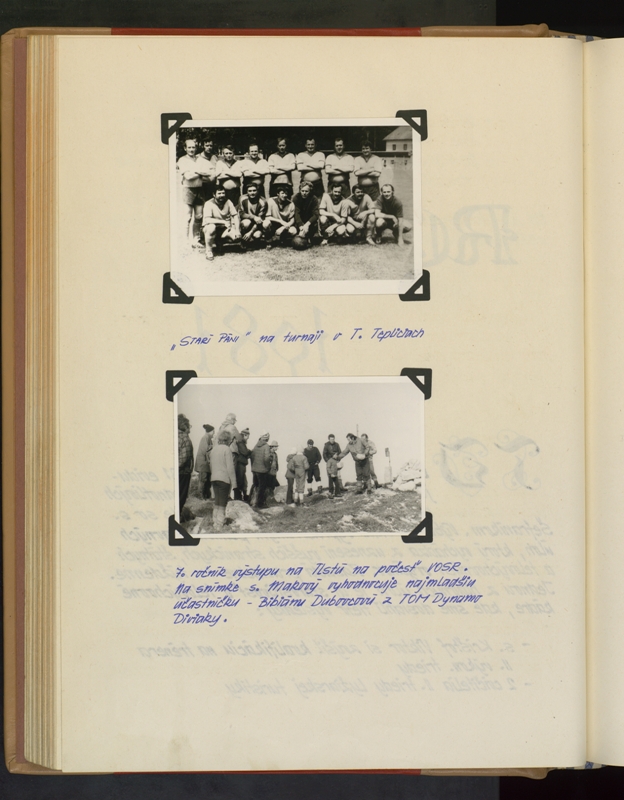 „STARÍ PÁNI" na turnaji v T. Tepliciach
7. ročník výstupu na Tlstú na počesť VOSR.
Na snímke s. Makový vyhodnocuje najmladšiu
účastníčku - Bibiánu Dubovcovú z TOM Dynamo
Diviaky.